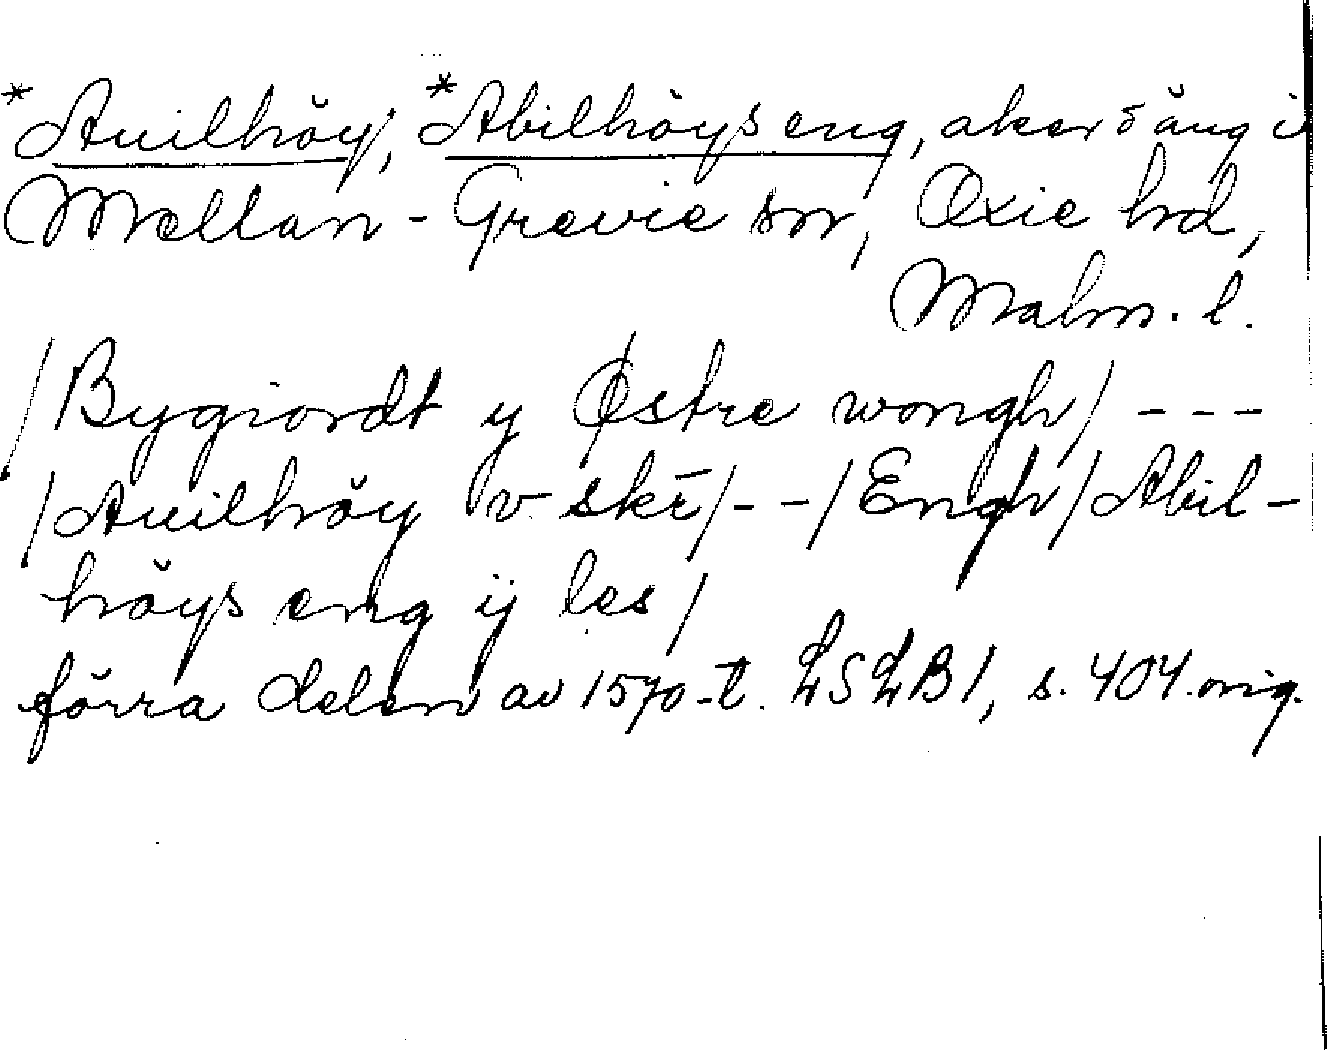 *Auilhöy, *Abilhöys eng, aker o äng i
Mellan-Grevie sn, Oxie hd,
Malm. l.
/Bygiordt y Østre wongh/ ---
/Auilhöy v skr̄/--/Engh/Abil-
höys eng ij les/
förra delen av 1570-t. LSLB1, s. 404. orig.